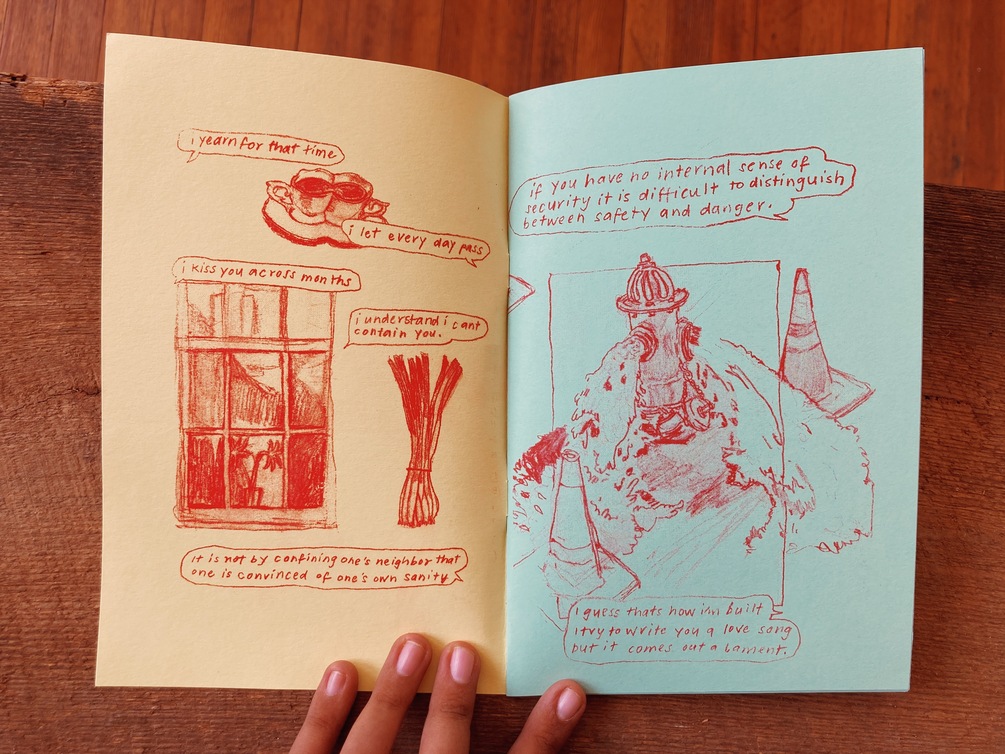 i yearn for that time
i let every day pass
i kiss you across months
i understand i cant
contain you.
It is not by confining one's neighbor that
one is convinced of one's own sanity
if you have no internal sense of
security it is difficult to distinguish
between safety and danger.
I guess thats how im built
I try to write you a love song
but it comes out a lament.